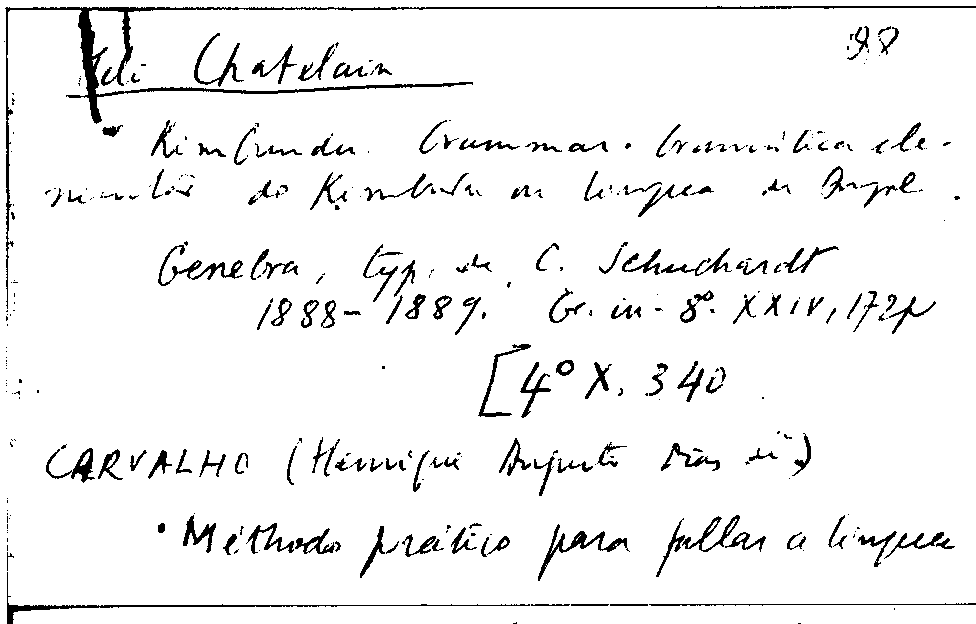 98
Héli Chatelain
Kimbundu Grammar. Gramática ele-
mentar do Kimbundu ou lingua de Angola.
Genebra, typ. de C. Schuchardt
1888-1889. Gr. in-8º. XXIV, 172p
[4º X. 340
CARVALHO (Henrique Augusto Dias de)
• Méthodo prático para fallar a lingua